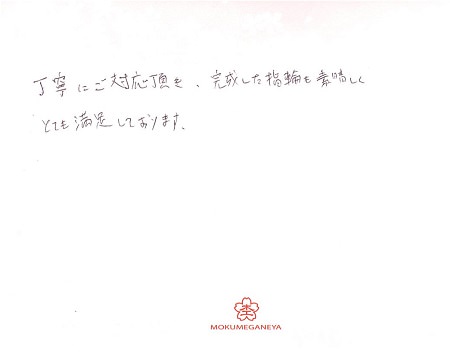 丁寧にご対応頂き、完成した指輪も素晴しく
とても満足しております。
杢
MOKUMEGANEYA